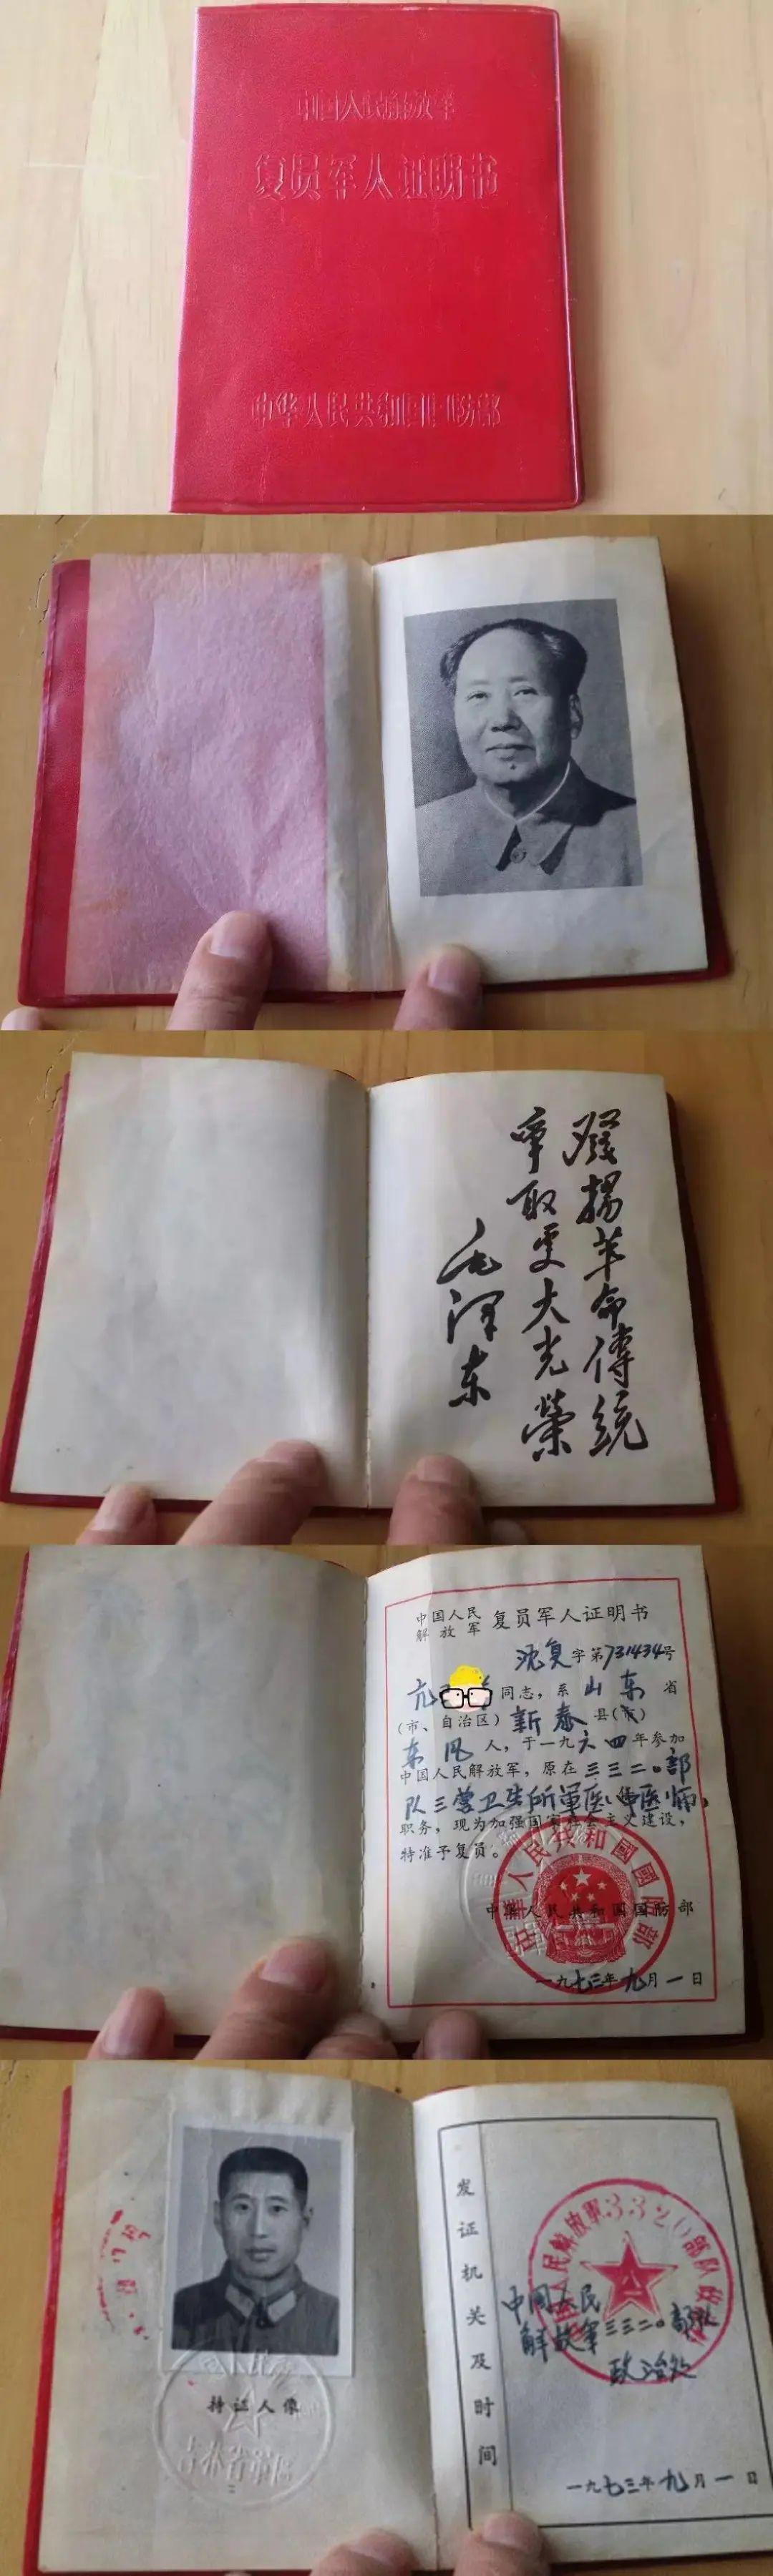 中国人民解放军
复员军人证明书
中华人民共和国国防部
發揚革命傳統
爭取更大光榮
毛泽东
中国人民
解放军 复员军人证明书
沈复字第731434号
亢 同志，系山东省
（市、自治区）新泰县（市）
东风人，于一九六四年参加
中国人民解放军，原在三三二〇部
队三营卫生所军医、中医师，
职务，现为加强国家社会主义建设，
特准予复员。
中华人民共和国国防部
中华人民共和國國防部
一九七三年九月一日
持证人像
吉林省军区
发证机关及时间
人民解放軍3320部队政
中国人民
解放军三三二〇部队
政治处
一九七三年九月一日